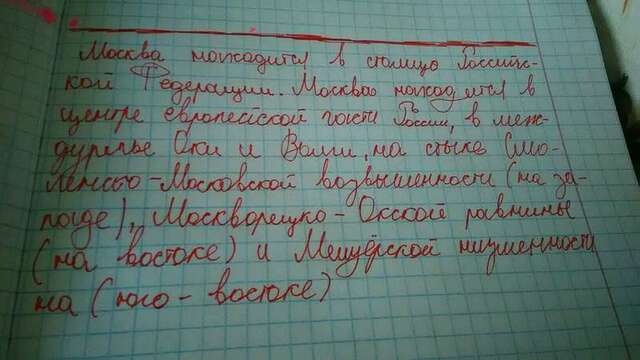 Москва находится в столицо Российс-
кой Федерации. Москвао находится в
центре европейской части России, в меж-
дуречье Оки и Волги, на стыке Смо-
ленско-Московской возвышенности (на за-
паде), Москворецко-Окской равнины
(на востоке) и Мещёрской низменности
на (юго-востоке)